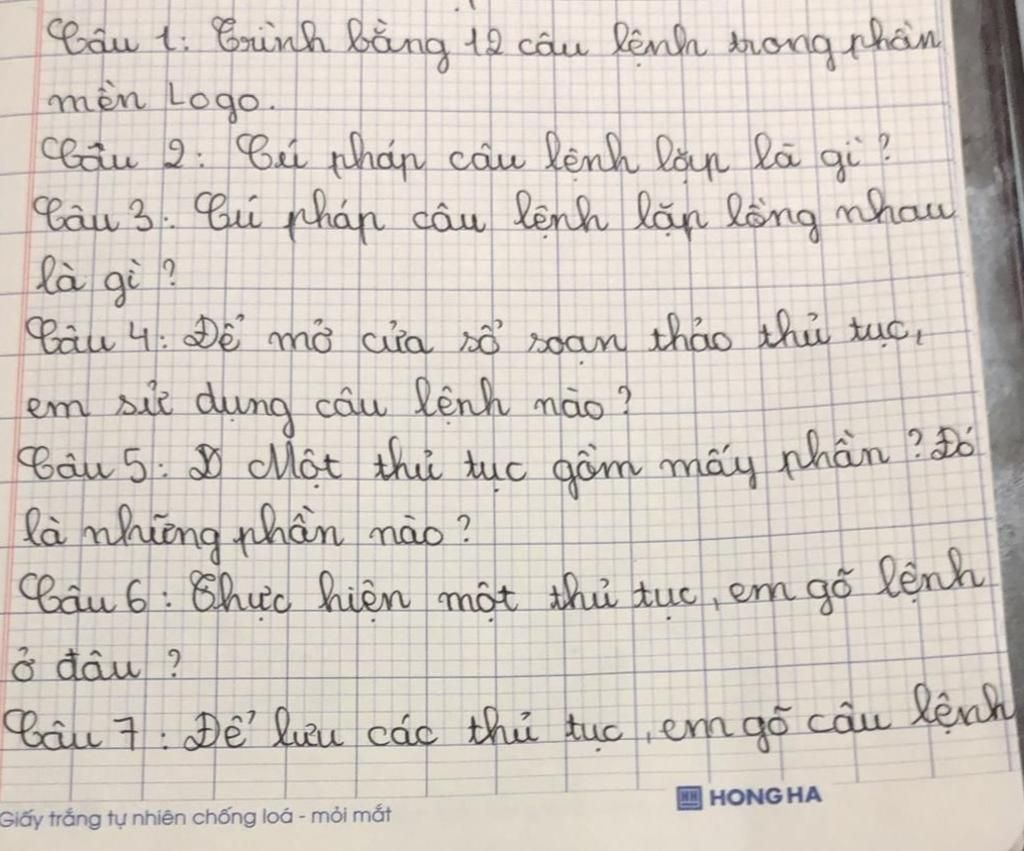 Câu 1: Trình bằng 12 câu lệnh trong phần
mền Logo.
Câu 2: Cú pháp câu lệnh lặp là gì?
Câu 3: Cú pháp câu lệnh lặp lồng nhau
là gì?
Câu 4: Để mở cửa sổ soạn thảo thủ tục,
em sử dụng câu lệnh nào?
Câu 5: Một thủ tục gồm mấy phần? Đó
là những phần nào?
Câu 6: Thực hiện một thủ tục, em gõ lệnh
ở đâu?
Câu 7: Để lưu các thủ tục, em gõ câu lệnh
HH HONG HA
Giấy trắng tự nhiên chống loá - mỏi mắt